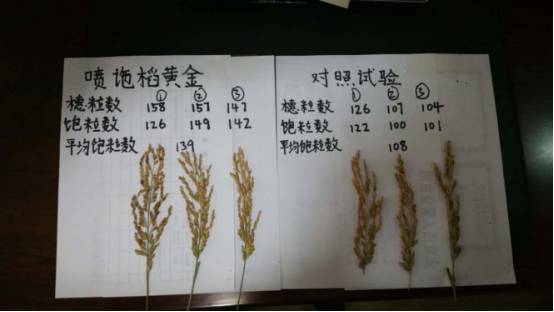 喷施稻黄金
① ② ③
穗粒数 158 157 147
饱粒数 126 149 142
平均饱粒数 139
对照试验
① ② ③
穗粒数 126 107 104
饱粒数 122 100 101
平均饱粒数 108